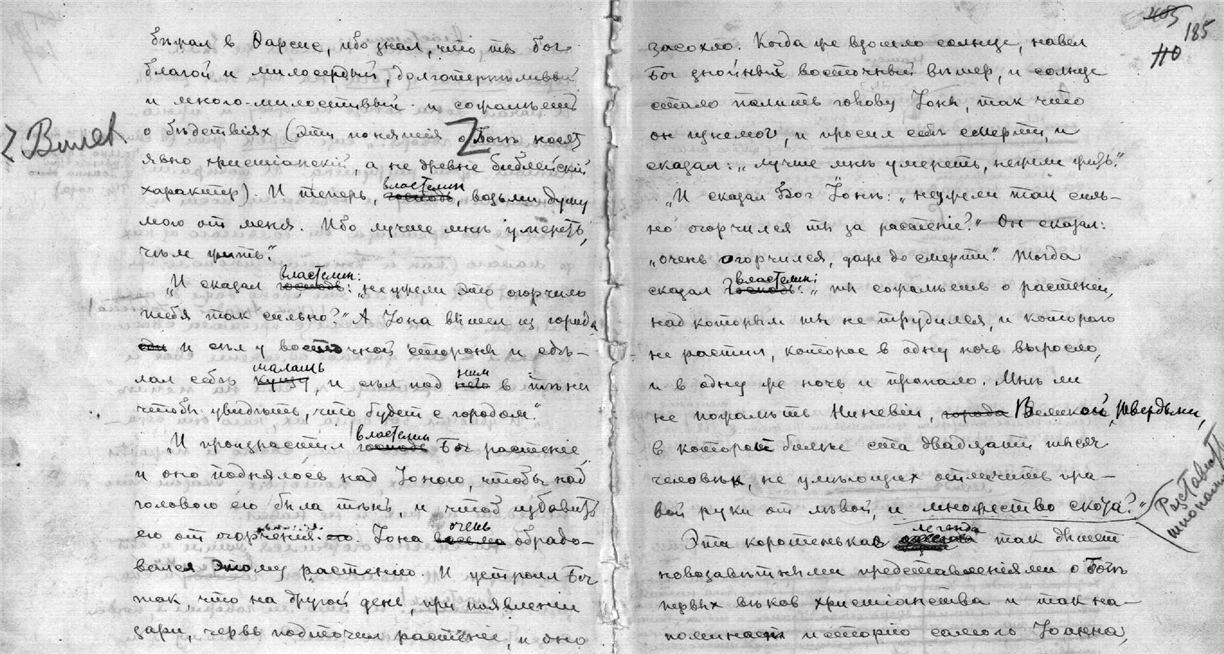 185
110
бѣжал в Фарсис, ибо знал, что ты бог
благой и милосердый, долготерпѣливый
и много-милостивый и сожалѣешь
о бѣдствіях (Эти понятія о Богѣ носят
явно христіанскій, а не древне библейскій
характер). И теперь, господь, властелин, возьми душу
мою от меня. Ибо лучше мнѣ умереть,
чѣм жить“.
„И сказал господь: властелин: „неужели это огорчило
тебя так сильно?“ А Іона вышел из города
и сѣл у восточной стороны и сдѣ-
лал себѣ кущу, шалаш, и сѣл под него ним в тѣни
чтобы увидѣть, что будет с городом“.
„И произрастил господь властелин Бог растеніе,
и оно поднялось над Іоною, чтобы над
головою его была тѣнь, и чтоб избавить
его от огорченія его. Іона весьма очень обрадо-
вался этому растенію. И устроил Бог
так что на другой день, при появленіи
зари, червь подточил растеніе, и оно
засохло. Когда же взошло солнце, навел
Бог знойный восточный вѣтер, и солнце
стало палить голову Іоны, так что
он изнемог, и просил себѣ смерти, и
сказал: „лучше мнѣ умереть, нежели жить“.
„И сказал Бог Іонѣ: „неужели так силь-
но огорчился ты за растеніе?“ Он сказал:
„очень огорчился, даже до смерти“. Тогда
сказал Господь: властелин: „ты сожалѣешь о растеніи,
над которым ты не трудился, и которого
не растил, которое в одну ночь выросло,
и в одну же ночь и пропало. Мнѣ ли
не пожалѣть Ниневіи, города Великой Твердыни,
в которой болѣе ста двадцати тысяч
человѣк, не умѣющих отличить пра-
вой руки от лѣвой, и множество скота?“
Эта коротенькая легенда так дышет
новозавѣтными представленіями о Богѣ
первых вѣков христіанства и так на-
поминает исторію самого Іоанна,